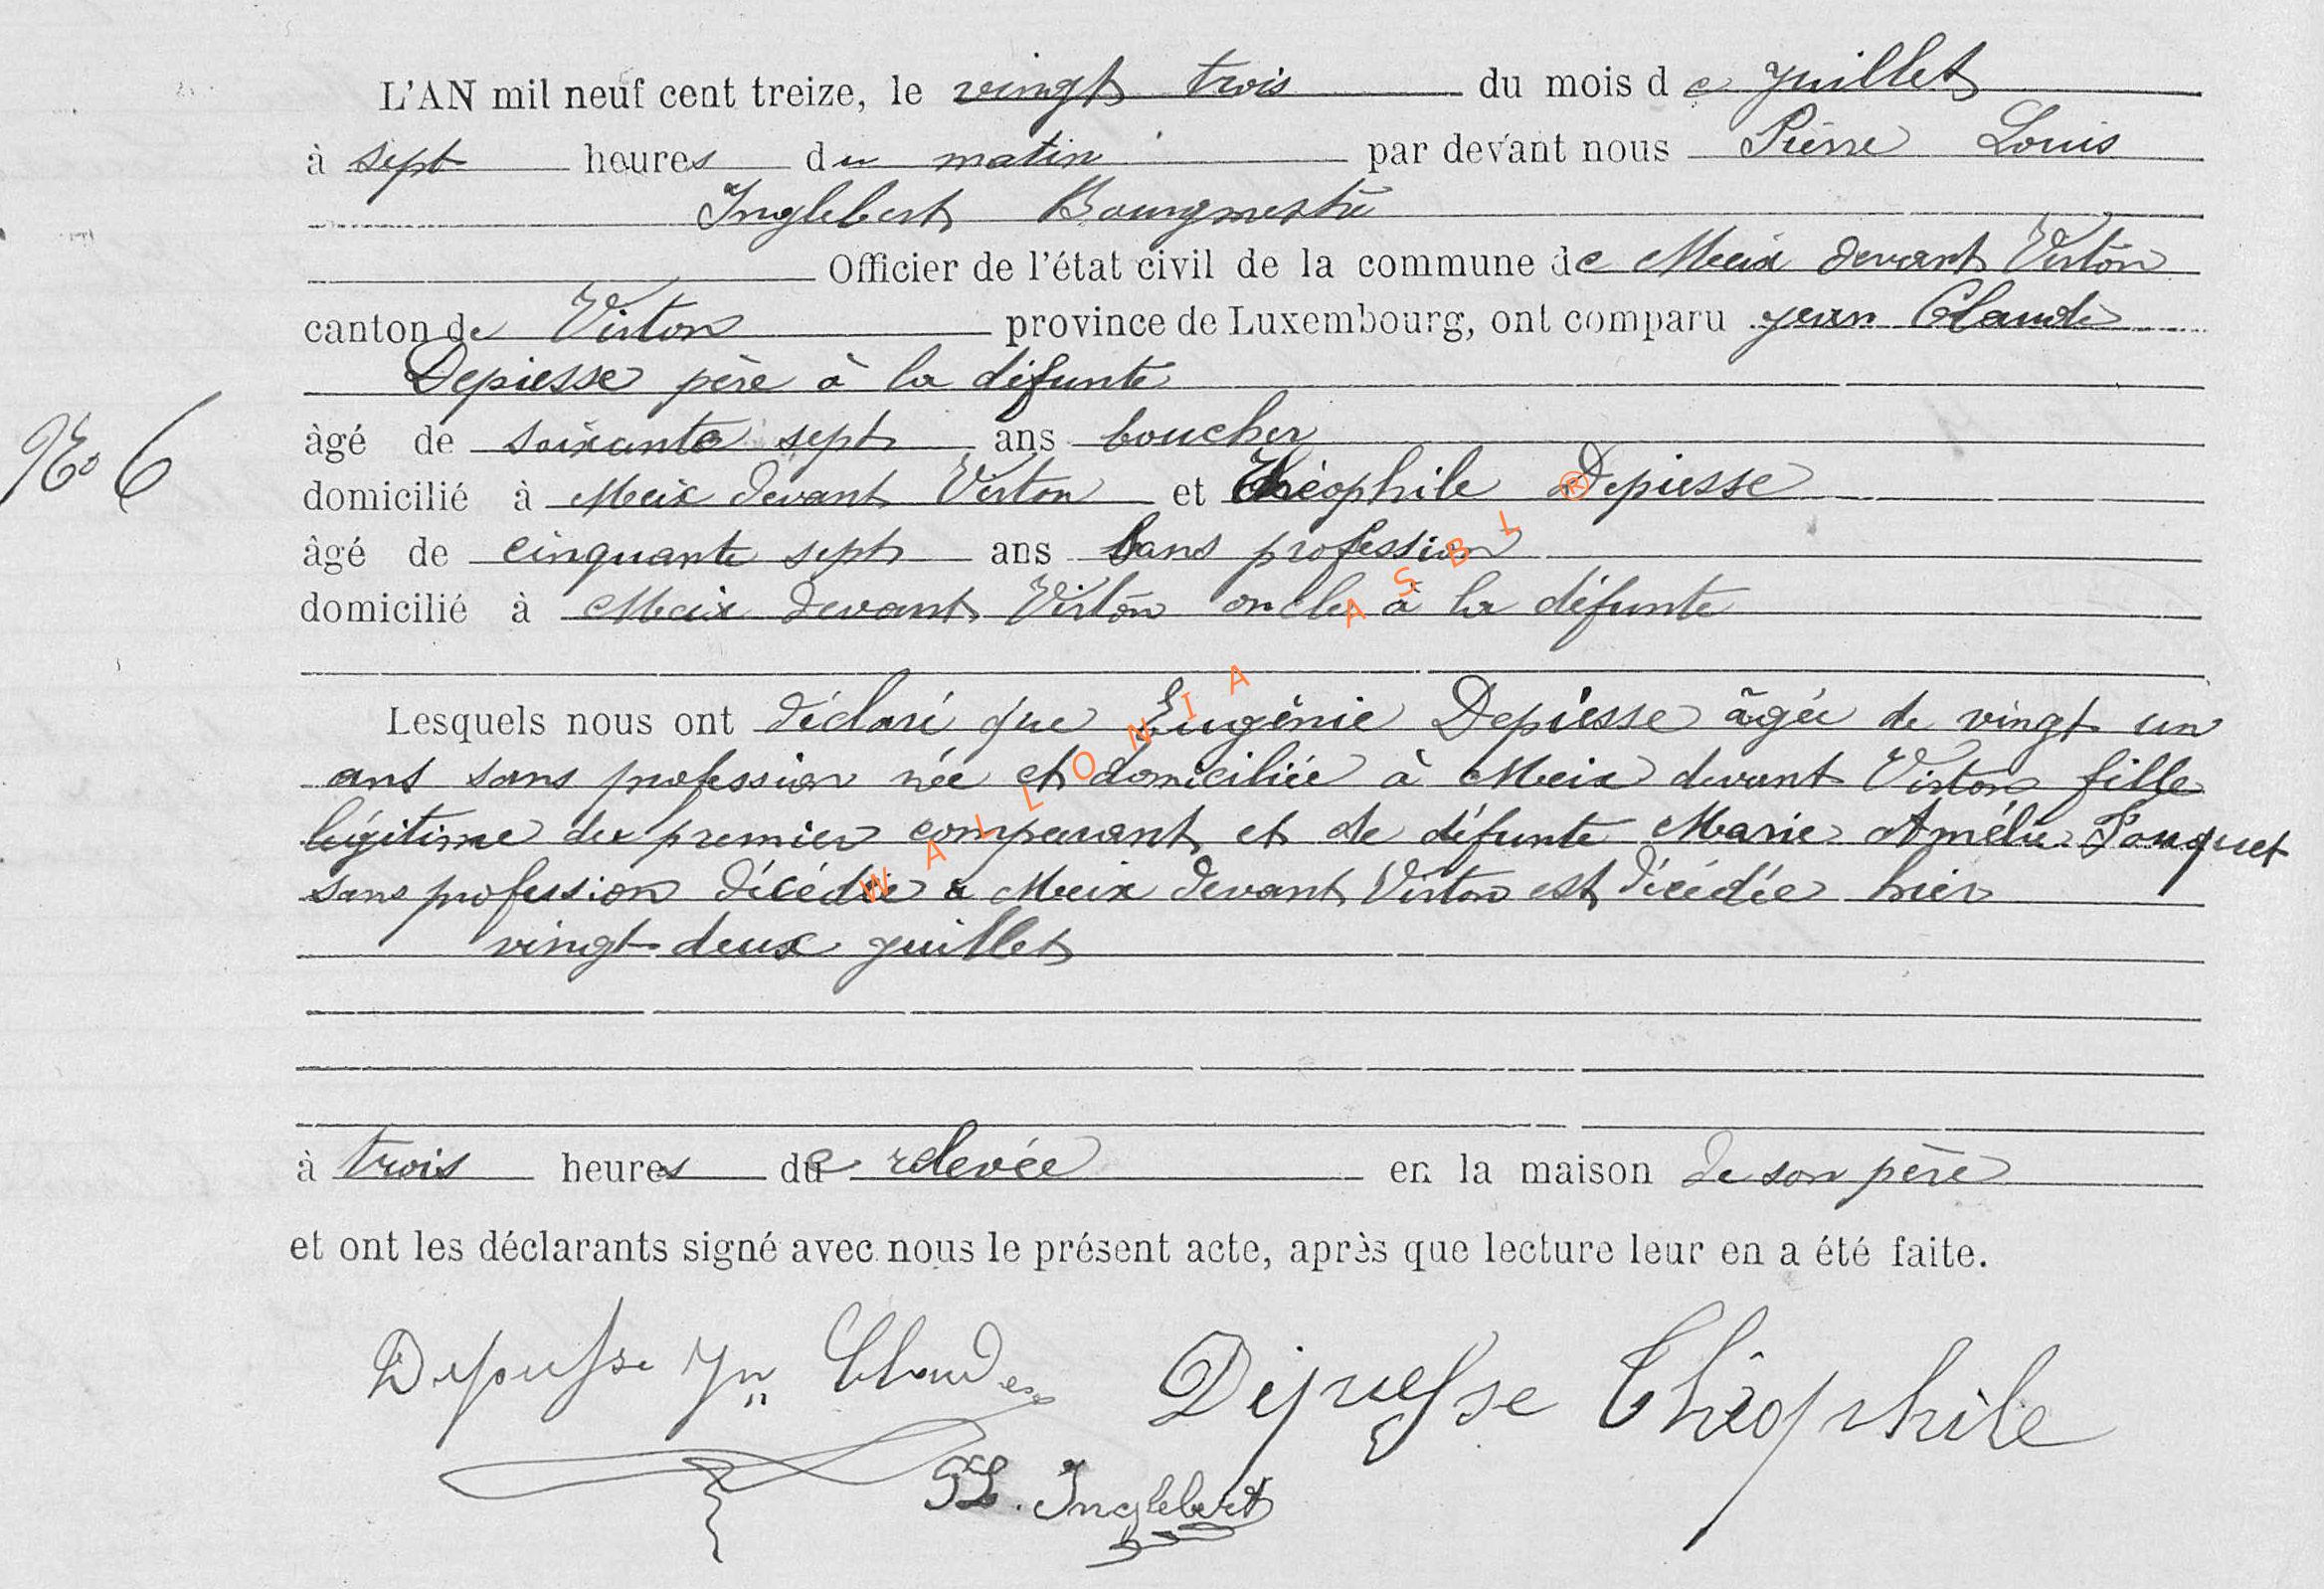 L'AN mil neuf cent treize, le vingt trois du mois de juillet
à sept heures du matin par devant nous Pierre Louis
Inglebert Bourgmestre
Officier de l'état civil de la commune de Meix devant Virton
canton de Virton province de Luxembourg, ont comparu Jean Claude
Depiesse père à la défunte
N° 6
âgé de soixante sept ans boucher
domicilié à Meix devant Virton et Théophile Depiesse
âgé de cinquante sept ans sans profession
domicilié à Meix devant Virton oncle à la défunte
Lesquels nous ont déclaré que Eugénie Depiesse âgée de vingt un
ans sans profession née et domiciliée à Meix devant Virton fille
légitime du premier comparant et de défunte Marie Amélie
sans profession décédée à Meix devant Virton est décédée hier
vingt deux juillet
à trois heures de relevée en la maison de son père
et ont les déclarants signé avec nous le présent acte, après que lecture leur en a été faite.
Depiesse Jn Claude Depiesse Théophile
PL. Inglebert
WALLONIA ASBL ®